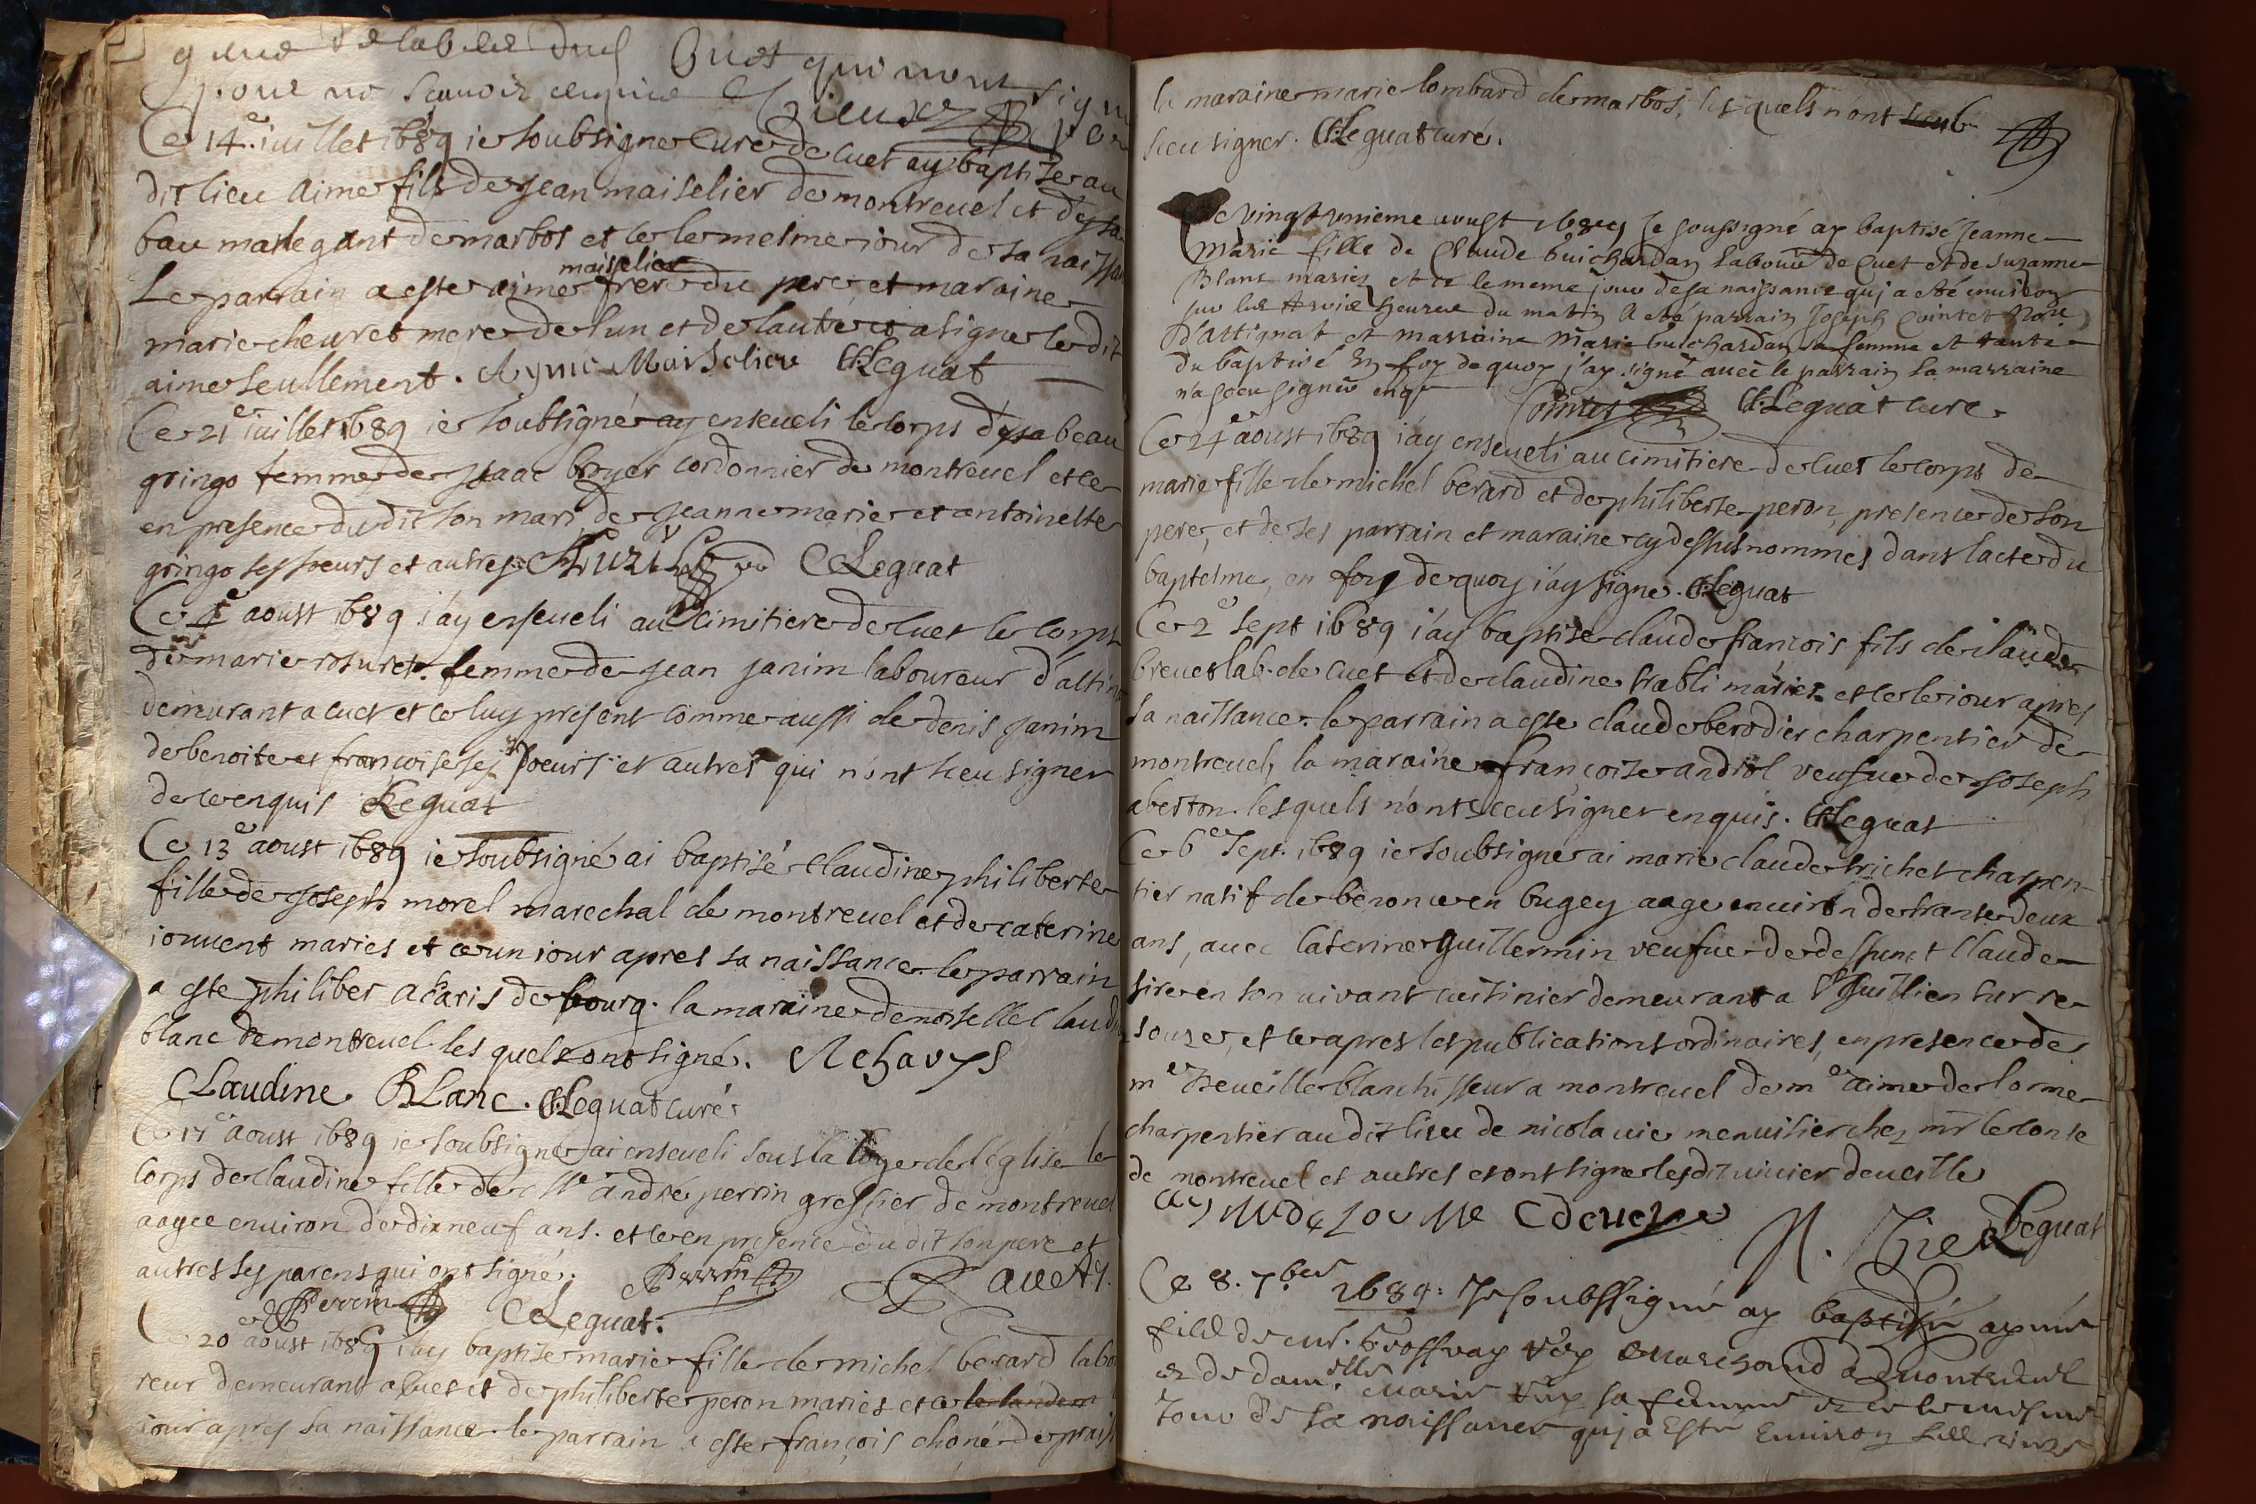 Cuet qui n'ont signé
pour ne scavoir
Ce 14e iuillet 1689 ie soubsigné Curé de cuet ay baptizé au
dit lieu aimé fils de jean maiselier de montrevel et d'ysa
beau de marbos et ce le mesme iour de sa naissan
maiselier
Le parrain a esté aimé frere du pere, et maraine
marie chevret mere de l'un et de l'autre a signé le dit
aimé seullement. Aymé Maiselier CLeguat
Ce 21e iuillet 1689 ie soubsigné ay enseueli le corps d'ysabeau
gringo femme de ysaac boyer cordonnier de montrevel et ce
en presence du dit son mari de jeanne marie et antoinette
gringo ses soeurs et autres CLeguat
Ce 4e aoust 1689 i'ay enseueli au cimitiere de cuet le corps
de marie rosuret femme de jean janim laboureur d'atti
demeurant a cuet et ce luy present comme aussi de denis janim
de benoite et francoise ses soeurs et autres qui n'ont sceu signer
de ce enquis CLeguat
Ce 13e aoust 1689 ie soubsigné ai baptisé claudine philiberte
fille de joseph morel marechal de montrevel et de caterine
iouvent mariés et ce un iour apres sa naissance le parrain
a esté philiber acharis de bourg. la maraine demoiselle claudi
blanc de montrevel les quels ont signé.
Claudine Blanc. CLeguat curé
Ce 17e aoust 1689 ie soubsigné ai enseueli sous la loge de l'eglise le
corps de claudine fille de Me andré perrin greffier de montrevel
aagee environ de dix neuf ans. et ce en presence du dit son pere et
autres ses parens qui ont signé. Perrin
Perrin CLeguat.
Ce 20e aoust 1689 i'ay baptisé marie fille de michel berard labou
reur demeurant a cuet et de philiberte peron mariés et ce le landem
iour apres sa naissance le parrain a esté françois choné de
la maraine marie lombard de marbos, lesquels n'ont sceub
sceu signer. CLeguat curé.
Ce vingt unieme aoust 1689 Je soussigné ay baptisé Jeanne
Marie fille de Claude Guichardan Labour de Cuet et de Suzanne
Blanc mariez et ce le meme jour de sa naissance qui a eté environ
sur les trois heures du matin A eté parrain Joseph Cointet Nore
D'Attignat et marraine Marie Guichardan sa femme et tante
du baptisé En foy de quoy j'ay signé avec le parrain la marraine
n'a sceu signer enqse Cointet CLeguat curé
Ce 24e aoust 1689 i'ay enseueli au cimitiere de cuet le corps de
marie fille de michel berard et de philiberte peron, presence de son
pere, et de ses parrain et maraine cy dessus nommes dans l'acte du
baptesme, en foy de quoy i'ay signé. CLeguat
Ce 2e sept 1689 i'ay baptisé claude françois fils de claude
brevet lab. de cuet et de claudine trabli mariés et ce le iour apres
sa naissance le parrain a esté claude berodier charpentier de
montrevel, la maraine françoise andriol veufue de joseph
aberton lesquels n'ont sceu signer enquis. CLeguat
Ce 6e Sept. 1689 ie soubsigné ai marié claude trichet charpen
tier natif de benonce en bugey aagé environ de trante deux
ans, avec caterine guillermin veufue de deffunct Claude
sire en son vivant cuisinier demeurant a St Guillien sur re
souze, et ce apres les publications ordinaires, en presence de
me deveille blanchisseur a montrevel de me aimé de lorme
charpentier au dit lieu de nicola vie menuisier chez mr le conte
de montrevel et autres et ont signé les dit deveille
Leguat
Ce 8. 7bre 1689. Je soubssigné ay baptisé aymé
fils de sr. Geoffray Marchand a Montrevel
et de damlle Marie sa femme et ce le mesme
Jour de sa naissance qui a Esté Environ